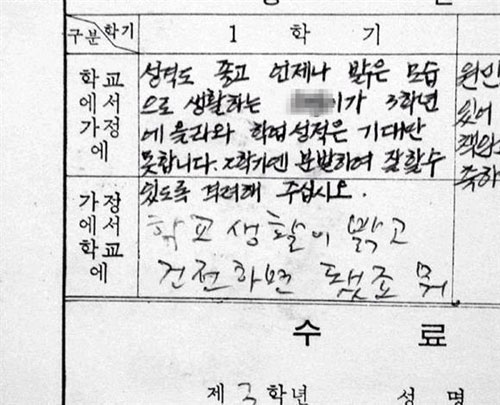 구분 학기
1 학 기
학교에서 가정에
성격도 좋고 언제나 밝은 모습
으로 생활하는 이가 3학년
에 올라와 학업성적은 기대만
못합니다. 2학기엔 분발하여 잘할수
있도록 격려해 주십시오.
가정에서 학교에
학교생활이 밝고
건전하면 됐죠 뭐
원만
있어
축하
수 료
제 3 학년 성 명